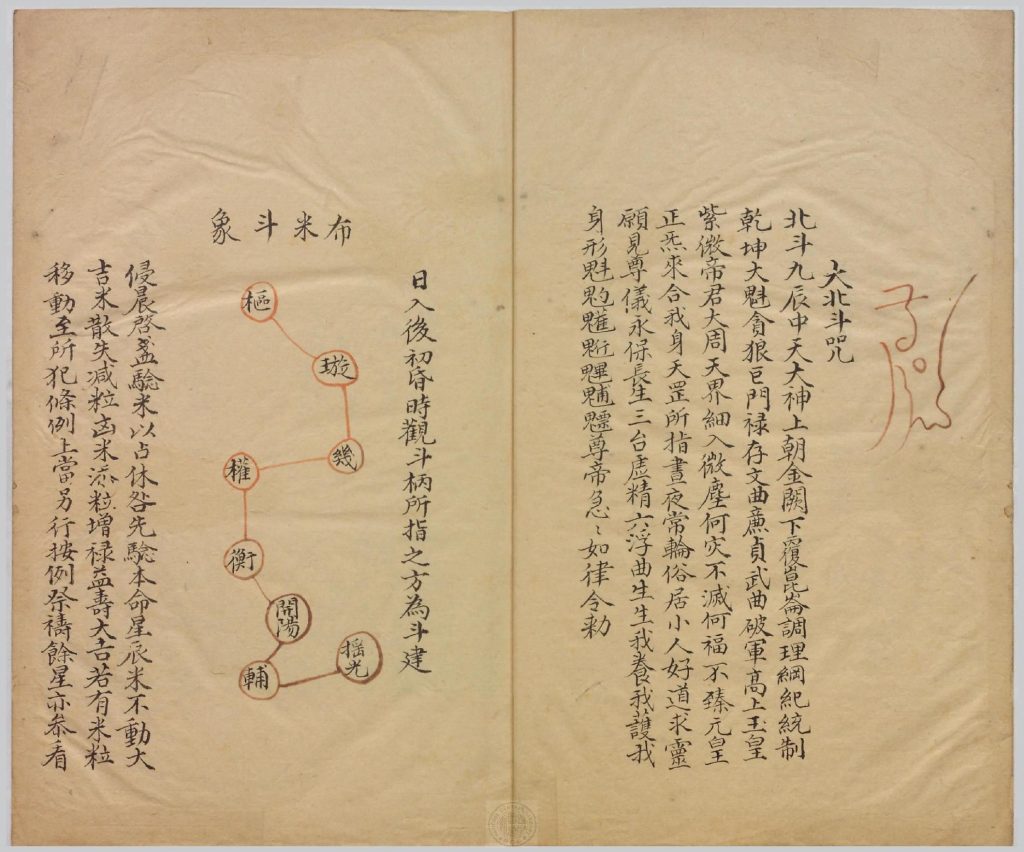 大北斗咒
北斗九辰中天大神上朝金闕下覆崑崙調理綱紀統制
乾坤大魁貪狼巨門禄存文曲㢘貞武曲破軍高上玉皇
紫微帝君大周天界細入微塵何灾不滅何福不臻元皇
正炁來合我身天罡所指晝夜常輪俗居小人好道求靈
願見尊儀永保長生三台虛精六浮曲生生我養我護我
身形魁𩲃䰢魓𩴪魒魒尊帝急〻如律令勅
日入後初昏時觀斗柄所指之方為斗建
布米斗象
樞
璇
幾
權
衡
開陽
輔
揺光
侵晨啓盞驗米以占休咎先驗本命星辰米不動大
吉米散失减粒凶米添粒增禄益壽大吉若有米粒
移動至所犯條例上當另行按例祭禱餘星亦叅看